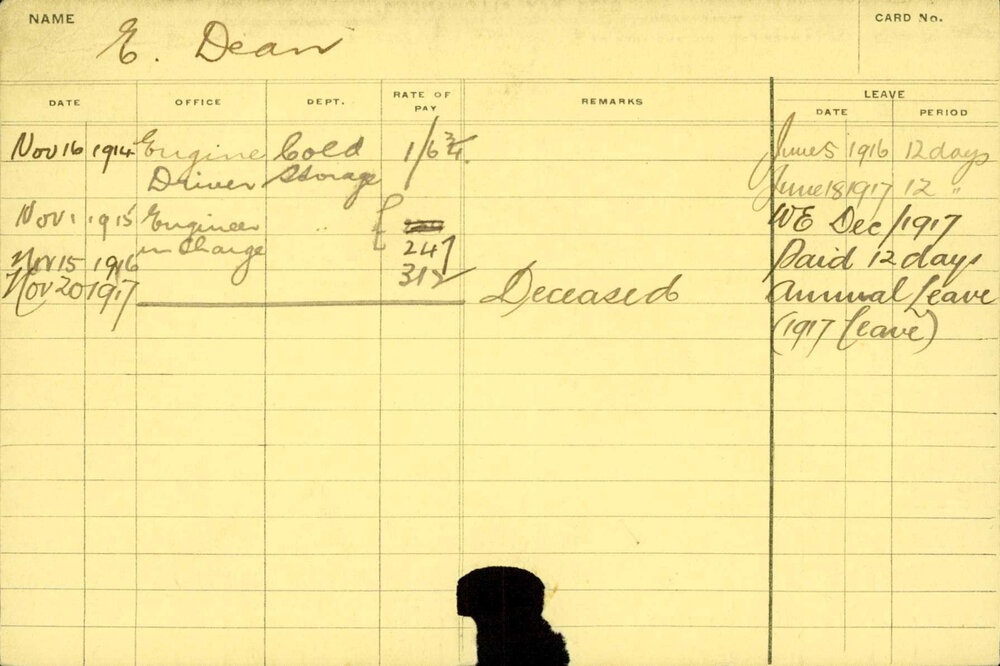 NAME E. Dean CARD No.
DATE OFFICE DEPT. RATE OF PAY REMARKS LEAVE
DATE PERIOD
Nov 16 1914 Engine Cold 1/6 3/4. June 5 1916 12 days
Driver Storage June 18 1917 12 "
Nov 1 1915 Engineer " WE Dec/1917
in Charge 247 Paid 12 days
Nov 15 1916 312
Nov 20 1917 Deceased Annual Leave
(1917 Leave)